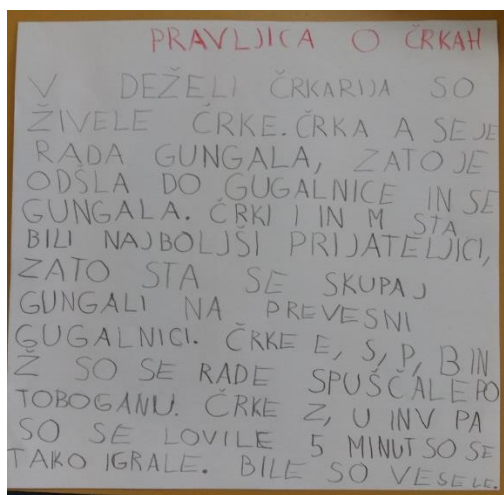 PRAVLJICA O ČRKAH
V DEŽELI ČRKARIJA SO
ŽIVELE ČRKE. ČRKA A SE JE
RADA GUNGALA, ZATO JE
ODŠLA DO GUGALNICE IN SE
GUNGALA. ČRKI I IN M STA
BILI NAJBOLJŠI PRIJATELJICI,
ZATO STA SE SKUPAJ
GUNGALI NA PREVESNI
GUGALNICI. ČRKE E, S, P, B IN
Ž SO SE RADE SPUŠČALE PO
TOBOGANU. ČRKE Z, U IN V PA
SO SE LOVILE 5 MINUT SO SE
TAKO IGRALE. BILE SO VESELE.